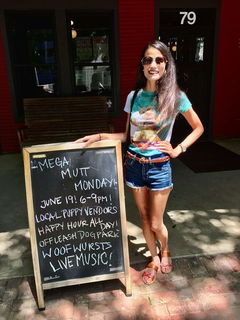 79
MEGA
MUTT
MONDAY!
JUNE 19! 6-9PM!
LOCAL PUPPY VENDORS
HAPPY HOUR ALL DAY!
OFF LEASH DOG PARK
WOOFWURSTS
LIVE MUSIC!